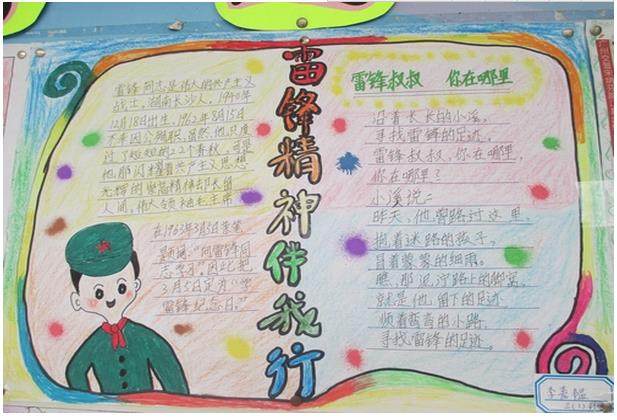 雷锋精神伴我行
雷锋同志是伟大的共产主义
战士,湖南长沙人,1940年
12月18日出生,1962年8月15日
不幸因公殉职,虽然,他只度
过了短短的22个春秋,可是
他那闪耀着共产主义思想
光辉的崇高精神却长留
人间,伟大领袖毛主席
在1963年3月5日亲笔
题词:“向雷锋同
志学习”因此把
3月5日定为“学
雷锋纪念日。”
雷锋叔叔 你在哪里
沿着长长的小溪,
寻找雷锋的足迹。
雷锋叔叔,你在哪里,
你在哪里?
小溪说:
昨天,他曾路过这里,
抱着迷路的孩子,
冒着蒙蒙的细雨。
瞧,那泥泞路上的脚窝,
就是他留下的足迹。
顺着弯弯的小路,
寻找雷锋的足迹。